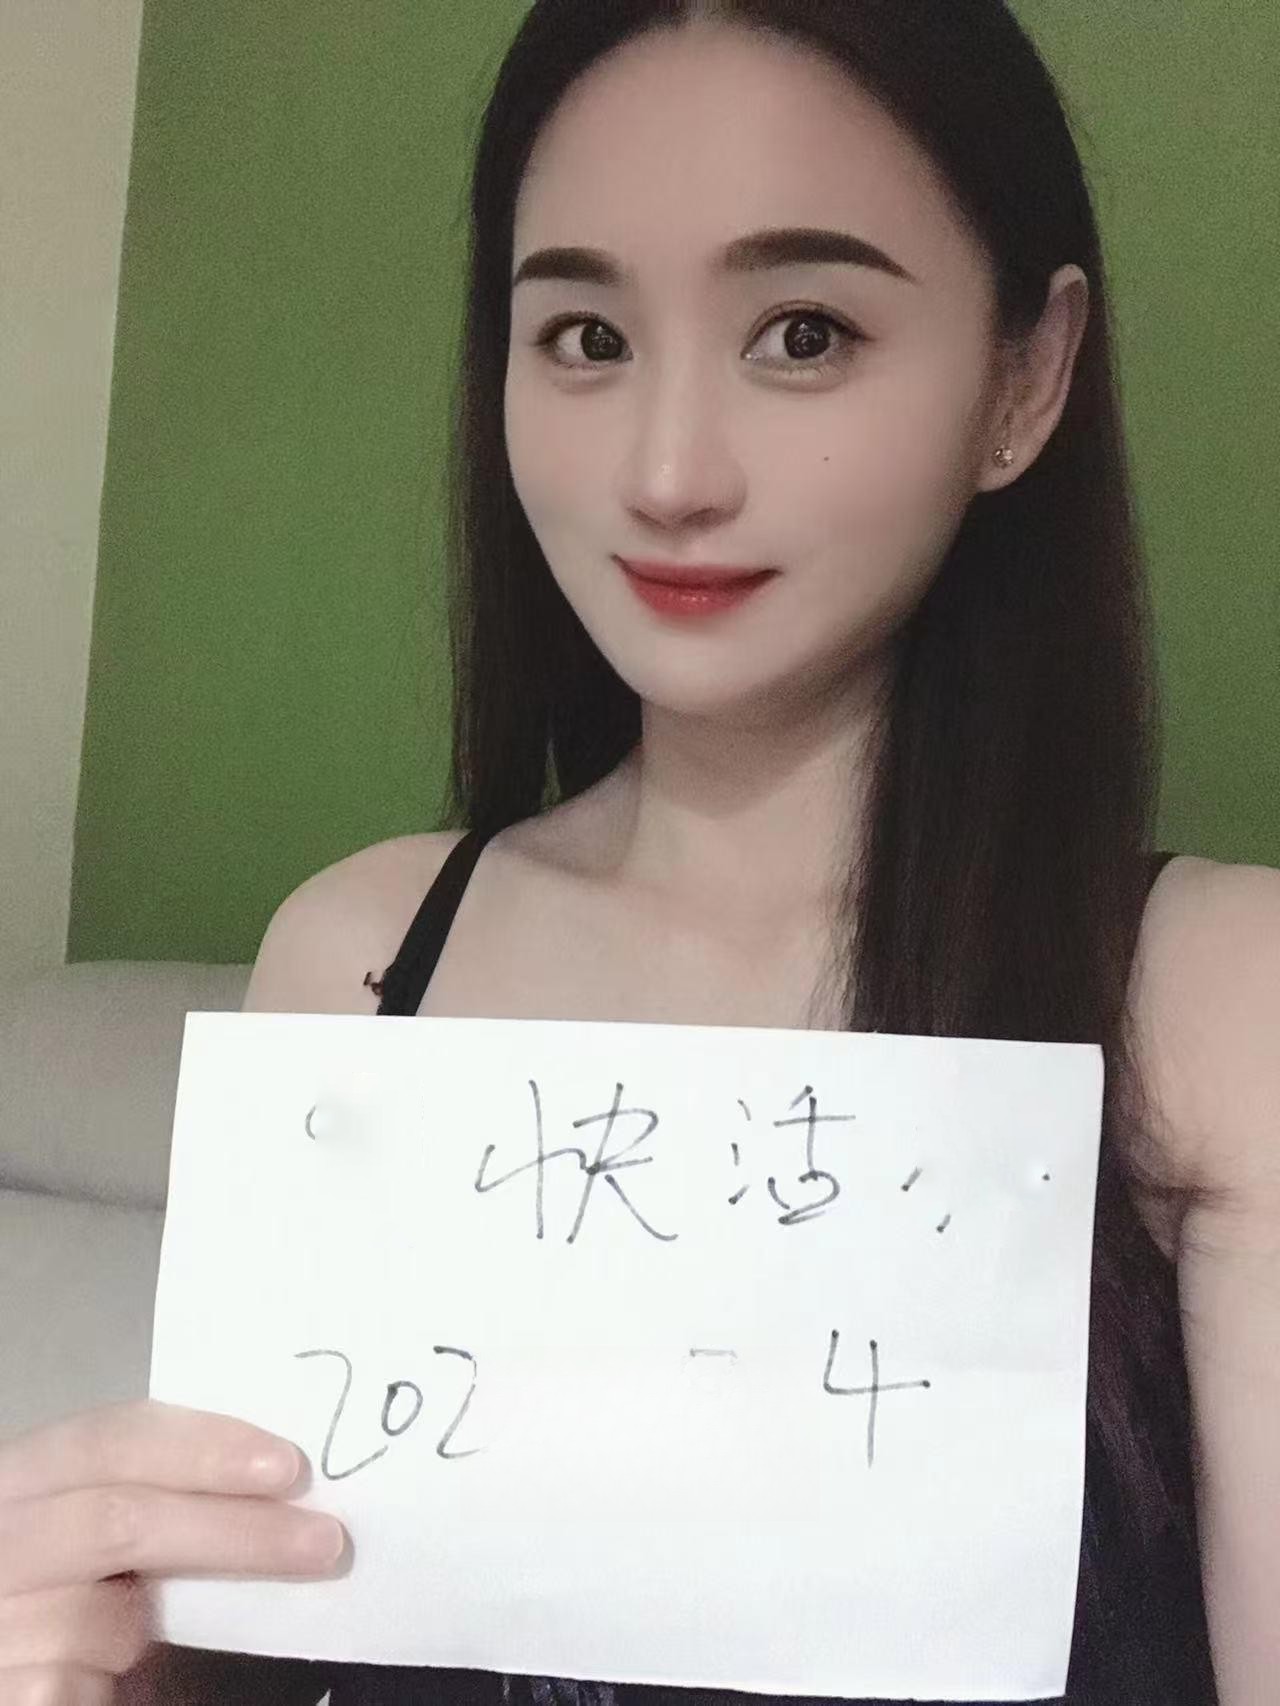 快活
202 4